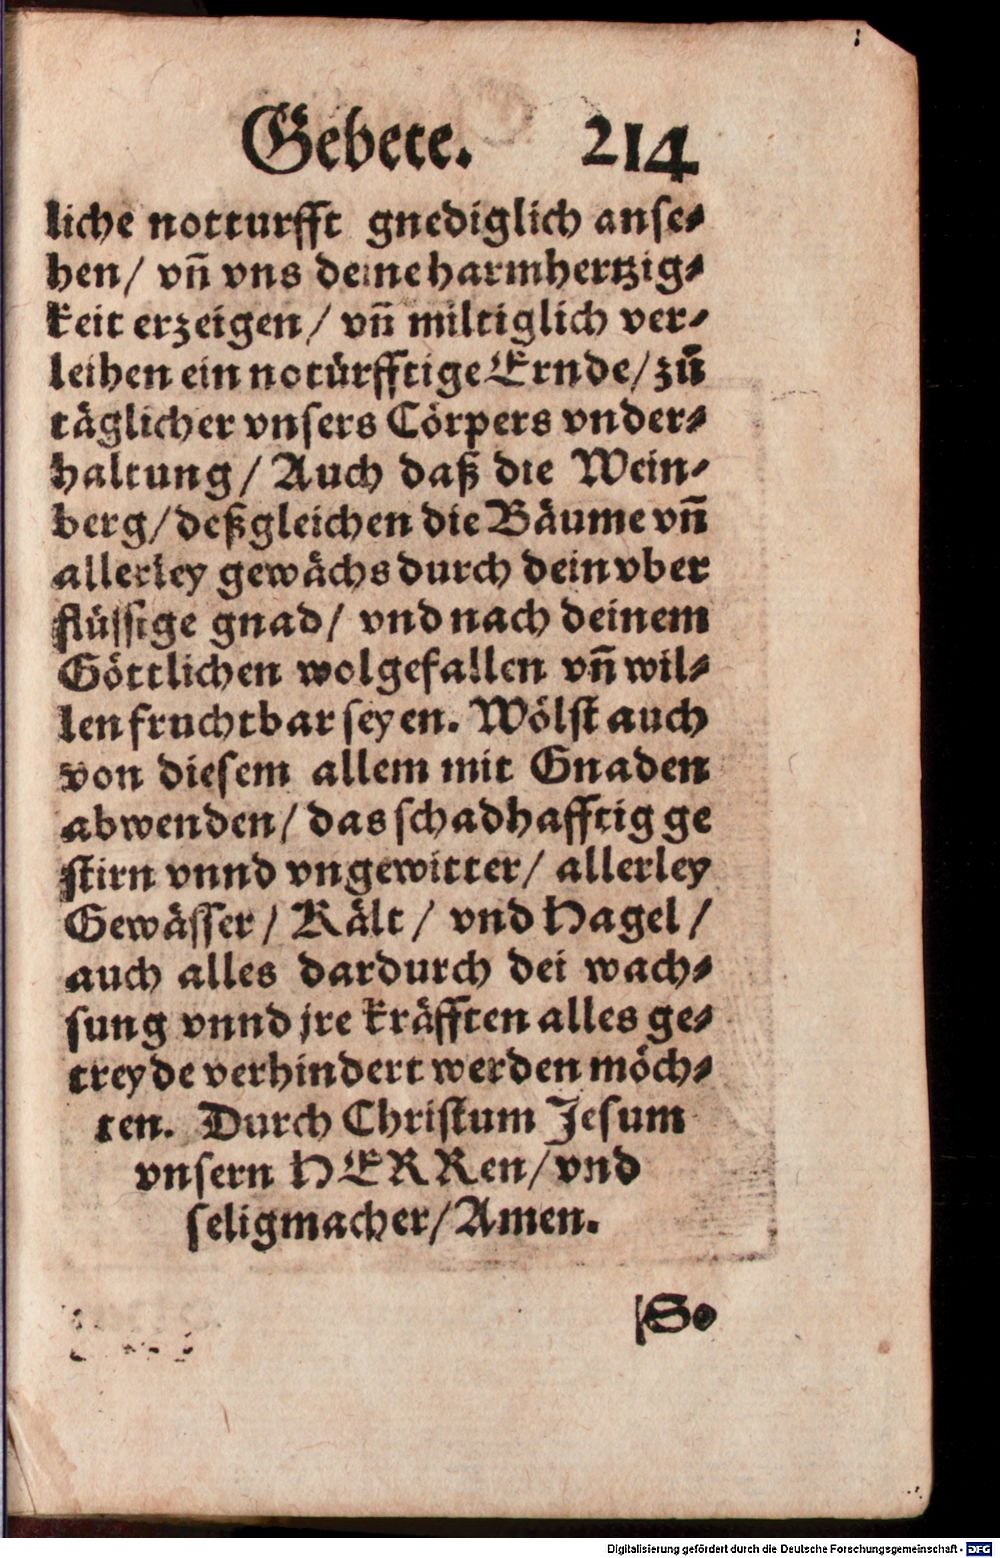 Gebete. 214
liche notturfft gnediglich anse⸗
hen/ vñ vns deine harmhertzig⸗
keit erzeigen/ vñ miltiglich ver⸗
leihen ein notürfftige Ernde/ zů
täglicher vnsers Cörpers vnder⸗
haltung/ Auch daß die Wein⸗
berg/ deßgleichen die Bäume vñ
allerley gewächs durch dein vber
flüssige gnad/ vnd nach deinem
Göttlichen wolgefallen vñ wil⸗
len fruchtbar seyen. Wölst auch
von diesem allem mit Gnaden
abwenden/ das schadhafftig ge
stirn vnnd vngewitter/ allerley
Gewässer/ Kält/ vnd Hagel/
auch alles dardurch dei wach⸗
sung vnnd jre kräfften alles ge⸗
treyde verhindert werden möch⸗
ten. Durch Christum Jesum
vnsern HERRen/ vnd
seligmacher/ Amen.
So
Digitalisierung gefördert durch die Deutsche Forschungsgemeinschaft - DFG